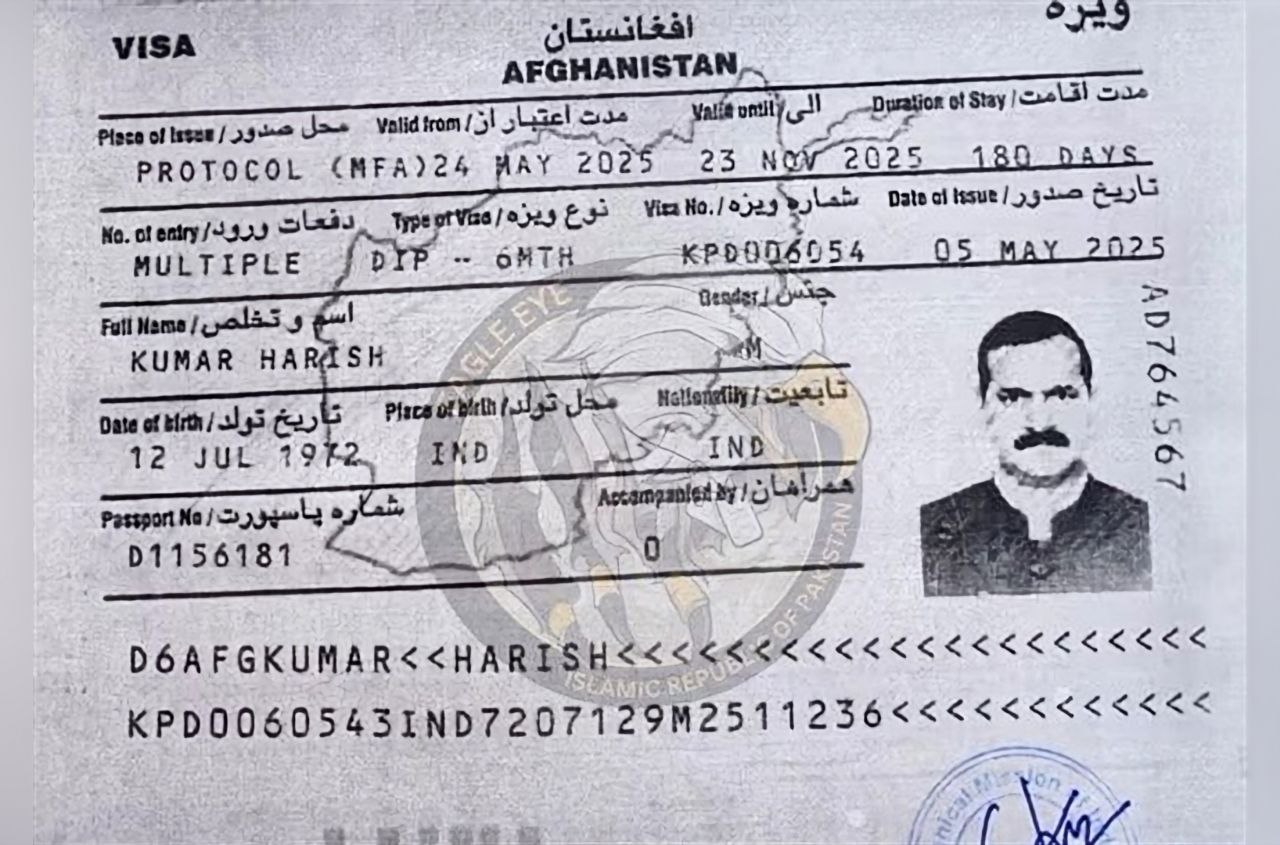 ویزه
VISA
افغانستان
AFGHANISTAN
Place of Issue / محل صدور Valid from / مدت اعتبار از Valid until / الی Duration of Stay / مدت اقامت
PROTOCOL (MFA) 24 MAY 2025 23 NOV 2025 180 DAYS
No. of entry / دفعات ورود Type of Visa / نوع ویزه Visa No. / شماره ویزه Date of Issue / تاریخ صدور
MULTIPLE DIP -- 6MTH KPD006054 05 MAY 2025
Full Name / اسم و تخلص Gender / جنس
KUMAR HARISH M
Date of birth / تاریخ تولد Place of birth / محل تولد Nationality / تابعیت
12 JUL 1972 IND IND
Passport No / شماره پاسپورت Accompanied by / همراهان
D1156181 0
AD764567
D6AFGKUMAR<<HARISH<<<<<<<<<<<<<<<<<<<<<<
KPD0060543IND7207129M2511236<<<<<<<<<<<<
EYE
ISLAMIC REPUBLIC OF PAKISTAN
Mission of